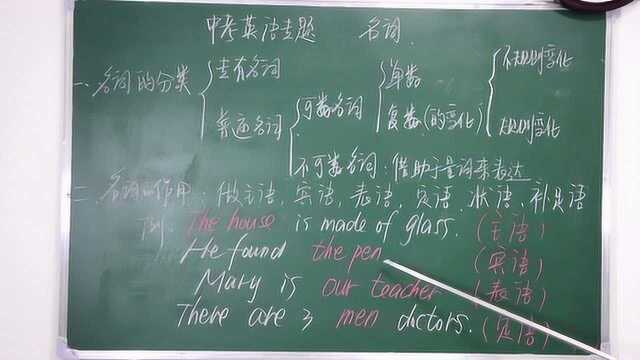 中考英语专题 名词
一、名词的分类
专有名词
普遍名词
可数名词
单数
复数(的变化)
不规则变化
规则变化
不可数名词:借助于量词来表达
二、名词的作用:做主语,宾语,表语,定语,状语,补足语
例: The house is made of glass. (主语)
He found the pen (宾语)
Mary is our teacher (表语)
There are 3 men doctors. (定语)